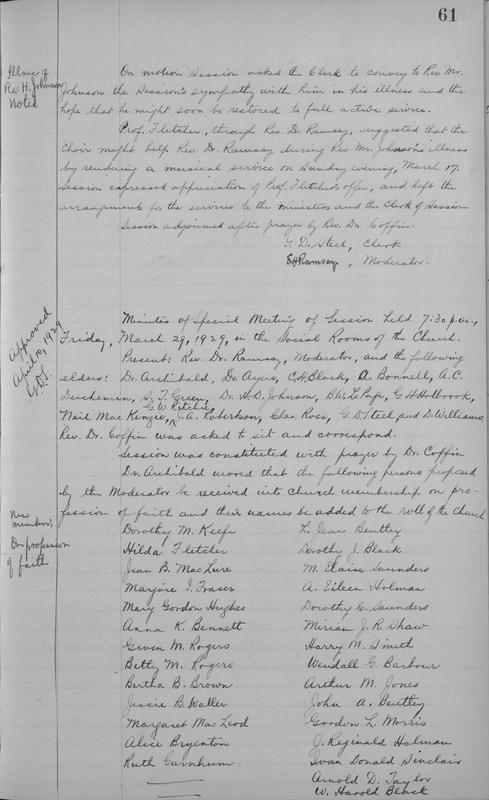 61
Illness of
Rev H. Johnson
Noted
On motion Session asked the Clerk to convey to Rev. Mr.
Johnson the Session's sympathy with him in his illness and the
hope that he might soon be restored to full active service.
Prof. Fletcher, through Rev. Dr. Ramsay, suggested that the
Choir might help Rev. Dr. Ramsay during Rev. Mr. Johnson's illness
by rendering a musical service on Sunday evening, March 17.
Session expressed appreciation of Prof. Fletcher's offer, and left the
arrangement for the services to the ministers and the Clerk of Session
Session adjourned after prayer by Rev. Dr. Coffin.
G. D. Steel, Clerk
EHRamsay, Moderator.
Approved
April 10, 1929
G.D.S.
Minutes of Special Meeting of Session held 7:30 p.m.,
Friday, March 29, 1929, in the Social Rooms of the Church.
Present: Rev. Dr. Ramsay, Moderator, and the following
elders: Dr. Archibald, Dr. Ayers, C.H. Black, A. Bonnell, A.C.
Duchemin, S. T. Green, Dr. H.D. Johnson, B.W. LePage, G H Holbrook,
G.W. Ritchie,
Neil MacKenzie, J.A. Robertson, Chas. Ross, G. D Steel, and D. Williams.
Rev. Dr. Coffin was asked to sit and correspond.
Session was constituted with prayer by Dr. Coffin
Dr. Archibald moved that the following persons proposed
by the Moderator be received into church membership on pro-
fession of faith and their names be added to the roll of the church
New
members
On profession
of faith
Dorothy M. Keefe
L. Jean Bentley
Hilda Fletcher
Dorothy J. Black
Jean B. MacLure
M. Elaine Saunders
Marjorie I. Fraser
A. Eileen Holman
Mary Gordon Hughes
Dorothy C. Saunders
Anna K. Bennett
Mirian J. R. Shaw
Gwen M. Rogers
Harry M. Smith
Betty M. Rogers
Wendall G. Barbour
Bertha B. Brown
Arthur M. Jones
Jessie B. Waller
John A. Bentley
Margaret MacLeod
Gordon L. Morris
Alice Bryenton
J. Reginald Holman
Ruth Garnhum
Ivan Donald Sinclair
Arnold D. Taylor
W. Harold Black